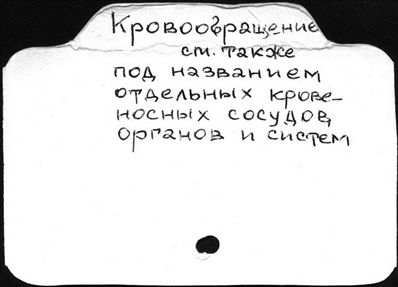 Кровообращение
см. также
под названием
отдельных крове-
носных сосудов,
органов и систем